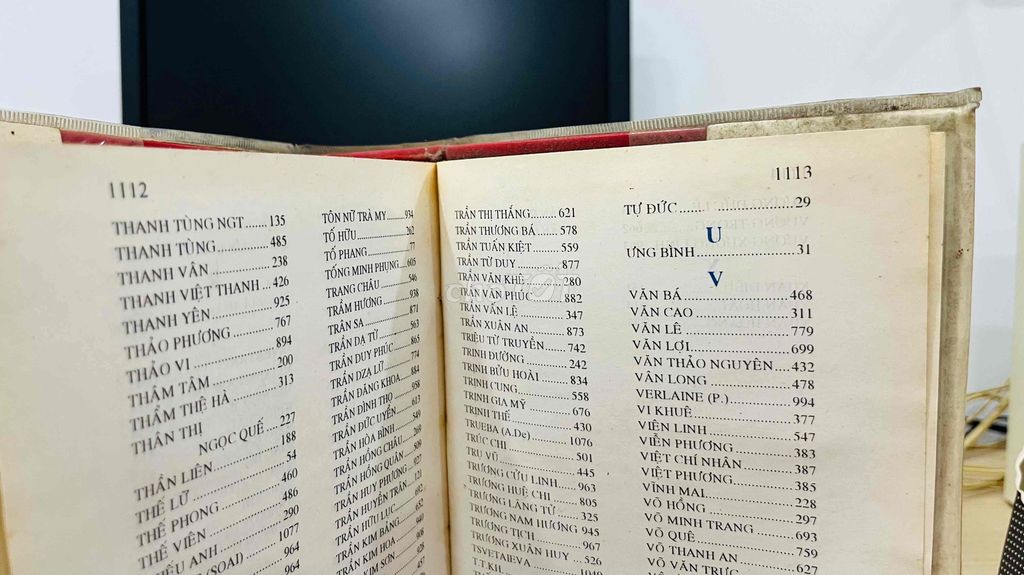 1112
THANH TÙNG NGT......135
THANH TÙNG............485
THANH VÂN..............238
THANH VIỆT THANH...426
THANH YÊN..............925
THẢO PHƯƠNG..........767
THẢO VI..................894
THÂM TÂM..............200
THẨM THỆ HÀ...........313
THÂN THỊ
NGỌC QUẾ...227
THẦN LIÊN..............188
THẾ LỮ..................54
THẾ PHONG..............460
THẾ VIÊN................486
290
1077
(SOAI)..............964
TÔN NỮ TRÀ MY........934
TỐ HỮU..................262
TỐ PHANG..............77
TỐNG MINH PHỤNG....605
TRANG CHÂU............546
TRẦM HƯƠNG............938
TRÂN SA................871
TRẦN DẠ TỪ............563
TRẦN DUY PHÚC........865
TRẦN DZẠ LỮ..........774
TRẦN ĐĂNG KHOA.......884
TRẦN ĐÌNH THỌ........958
TRẦN ĐỨC UYỂN........613
TRẦN HÒA BÌNH........549
TRẦN HỒNG CHÂU.......269
TRẦN HỒNG QUÂN.......509
TRẦN HUY PHƯƠNG......927
TRẦN HUYỀN TRÂN......121
TRẦN HỮU LỤC.........692
TRẦN KIM BẰNG........652
TRẦN KIM HOA.........940
KIM SƠN
1113
TRẦN THỊ THẮNG........621
TRẦN THƯƠNG BÁ.......578
TRẦN TUẤN KIỆT........559
TRẦN TỪ DUY..........877
TRẦN VĂN KHÊ.........280
TRẦN VĂN PHÚC........882
TRẦN VẤN LỆ...........347
TRẦN XUÂN AN..........873
TRIỆU TỪ TRUYỀN......742
TRINH ĐƯỜNG..........242
TRỊNH BỬU HOÀI.......834
TRỊNH CUNG............558
TRỊNH GIA MỸ..........676
TRỊNH THẾ..............430
TRUEBA (A.De).........1076
TRÚC CHI................501
TRỤ VŨ..................445
TRƯƠNG CỬU LINH.....963
TRƯƠNG HUỆ CHI.......805
TRƯƠNG LĂNG TỬ......325
TRƯƠNG NAM HƯƠNG 945
TRƯƠNG TỊCH...........967
TRƯƠNG XUÂN HUY....526
TSVETAEVA..............1049
T.T.KH.
TỰ ĐỨC..................29
U
ƯNG BÌNH................31
V
VĂN BÁ..................468
VĂN CAO................311
VĂN LÊ..................779
VĂN LỢI..................699
VĂN THẢO NGUYÊN....432
VÂN LONG................478
VERLAINE (P.)..........994
VI KHUÊ..................377
VIÊN LINH................547
VIỄN PHƯƠNG..........383
VIỆT CHÍ NHÂN.........387
VIỆT PHƯƠNG..........385
VĨNH MAI................228
VÕ HỒNG................297
VÕ MINH TRANG........693
VÕ QUÊ..................759
VÕ THANH AN..........627
VÕ VĂN TRỰC